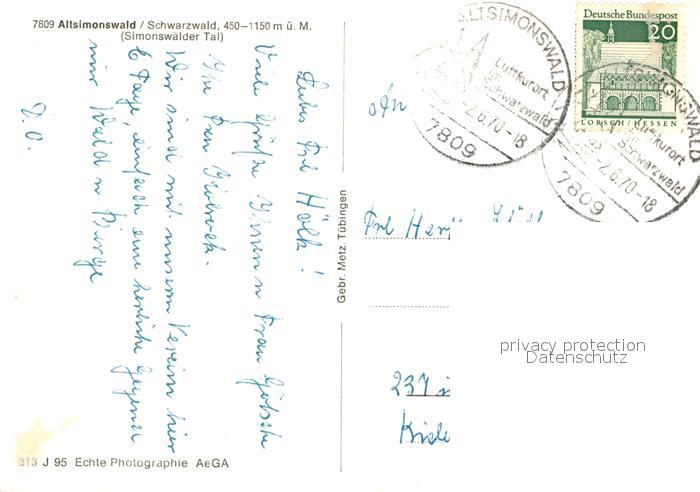 7809 Altsimonswald / Schwarzwald, 450–1150 m ü. M.
(Simonswälder Tal)
Liebes Frl Hölk!
Viele Grüße Ihnen u Frau Götsche
Ihre Frau
Wir sind mit unserm Verein hier
6 Tage einfach eine herliche Gegend
nur Wald u Berge
D. O.
Gebr. Metz, Tübingen
313 J 95 Echte Photographie AeGA
ALTSIMONSWALD
Luftkurort
im
Schwarzwald
-2.6.70-18
7809
Deutsche Bundespost
20
LORSCH/HESSEN
ALTSIMONSWALD
Luftkurort
im
Schwarzwald
-2.6.70-18
7809
An
Frl
237
privacy protection
Datenschutz